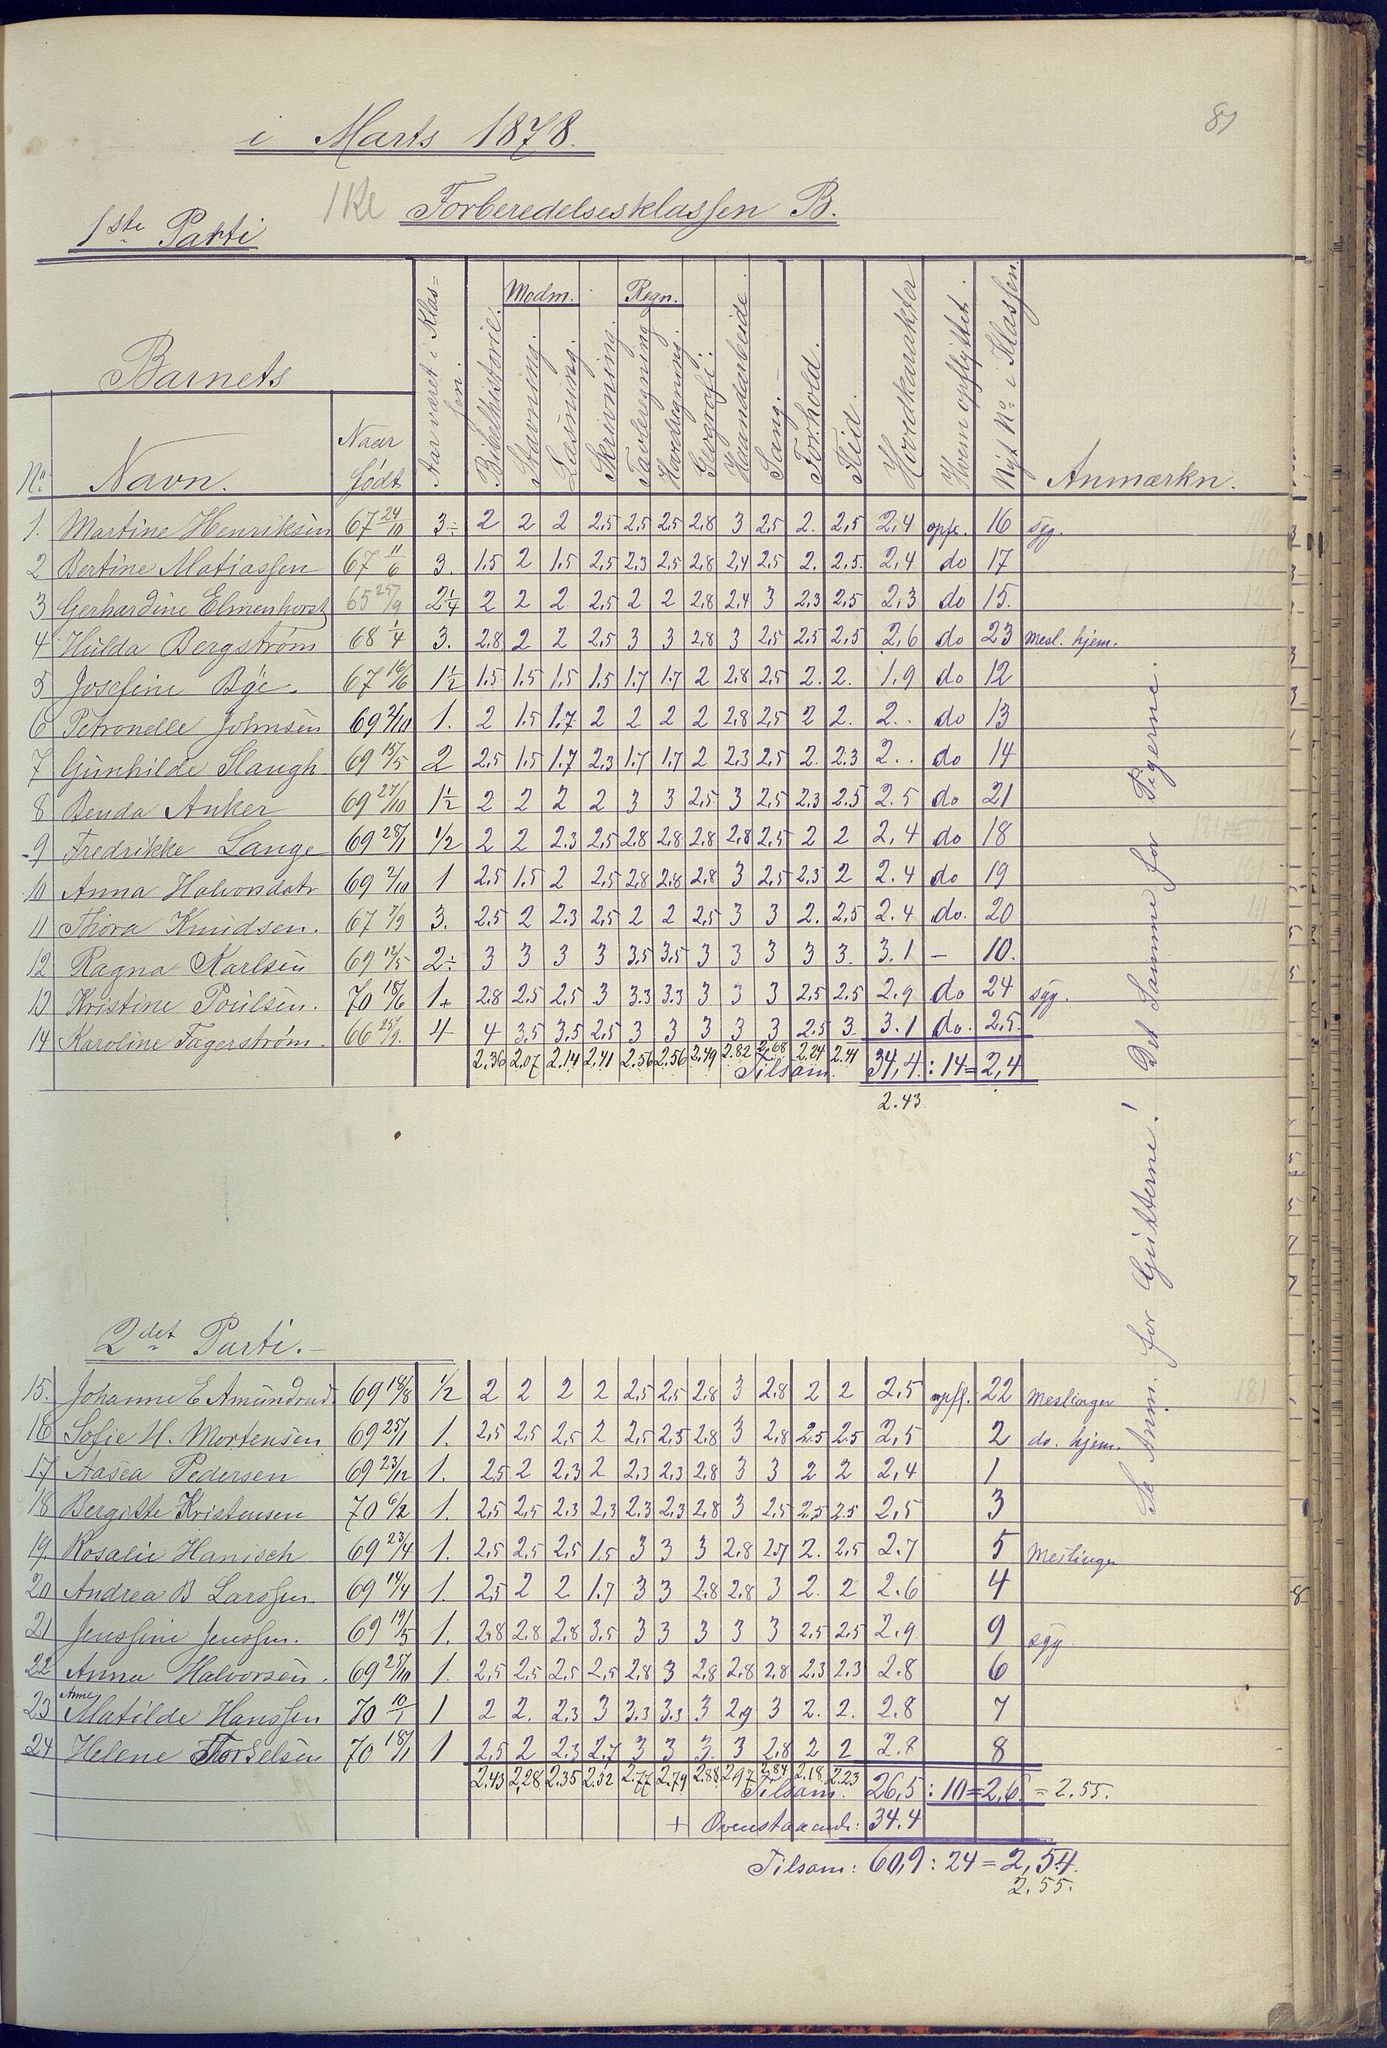 81
i Marts 1878.
1ste Parti Forberedelsesklassen B.
Barnets
No. Navn. Naar født Aar været i Klassen. Bibelhistorie. Modm. Stavning. Læsning. Skrivning. Regn. Tavleregning Hovedregning. Geografi. Haandarbeide. Sang. Forhold. Flid. Hovedkarakter Hvem opflyttet. Nyt No. i Klassen. Anmærkn.
1. Martine Henriksen 67 24/10 3÷ 2 2 2 2,5 2,5 2,5 2,8 3 2,5 2. 2,5 2,4 opfl. 16 syg.
2 Bertine Matiassen 67 11/6 3. 1.5 2 1.5 2,5 2.3 2,5 2,8 2,4 2,5 2. 2,5. 2,4 do 17
3 Gerhardine Elmenhorst 65 25/9 2 1/4 2 2 2 2,5 2 2 2,8 2,4 3 2,3 2,5 2,3 do 15.
4 Hulda Bergstrøm 68 1/4 3. 2,8 2 2 2,5 3 3 2,8 3 2,5 2,5 2,5 2,6 do 23 Mesl. hjem.
5 Josefine Bye. 67 16/6 1 1/2 1.5 1.5 1.5 1.5 1.7 1.7 2 2,8 2,5 2. 2. 1.9 do 12
6 Petronelle Johnsen 69 2/10 1. 2 1.5 1.7 2 2 2 2 2,8 2,5 2 2. 2. do 13
7 Gunhilde Slaugh 69 15/5 2 2.5 1.5 1.7 2.3 1.7 1.7 2 2.3 2.5 2. 2.3 2.. do 14
8 Benda Anker 69 27/10 1 1/2 2 2 2 2 3 3 2,5 3 2,5 2.3 2.5 2.5 do 21
9 Fredrikke Lange 69 28/1 1/2 2 2 2.3 2,5 2.8 2,8 2,8 2,8 2,5 2 2 2,4 do 18
10 Anna Halvorsdatr 69 2/10 1 2,5 1.5 2 2,5 2,8 2,8 2,8 3 2,5 2,3 2 2.4 do 19
11 Thora Knudsen. 67 7/9 3. 2,5 2 2.3 2,5 2 2 2,5 3 3 2. 2,5 2.4 do. 20
12 Ragna Karlsen 69 12/5 2÷ 3 3 3 3 3,5 3,5 3 3 3 3 3. 3.1 — 10.
13 Kristine Poulsen. 70 18/6 1+ 2.8 2,5 2,5 3 3.3 3.3 3 3 3 2,5 2,5 2,9 do 24 syg.
14 Karoline Fagerstrøm. 66 25/9. 4 4 3,5 3,5 2,5 3 3 3 3 3 2.5 3. 3.1 do. 25.
2.36 2.07 2.14 2.41 2.56 2.56 2.49 2.82 2.68 2.24 2.41
Tilsam 34,4 : 14 = 2,4
2.43
2det Parti.
15. Johanne E Amundrud 69 18/8 1/2 2 2 2 2 2,5 2,5 2,8 3 2,8 2 2 2,5 opfl. 22 Meslinger
16 Sofie H. Mortensen 69 25/1 1. 2,5 2,5 2,5 2 2,5 2,5 2,8 3 2,8 2.5 2.5 2,5 2 do. hjem.
17 Aasea Pedersen 69 23/12 1. 2,5 2 2,3 2 2,3 2,3 2,8 3 3 2 2 2,4 1
18 Bergitte Kristensen 70 6/2 1. 2,5 2,5 2,3 2,3 2,3 2,3 2,8 3 2,5 2,5 2.5 2,5 3
19. Rosalie Hanisch 69 23/4 1. 2,5 2,5 2,5 1.5 3 3 3 2.8 2,7 2. 2,5 2.7 5 Meslinger
20 Andrea B Larssen. 69 14/4 1. 2,5 2 2 1.7 3 3 2,8 2,8 3 2. 2 2.6 4
21 Jenssine Jenssen. 69 19/5 1. 2,8 2,8 2,8 3,5 3 3 3 3 3 2,5 2,5 2.9. 9 syg
22 Anna Halvorsen. 69 25/10 1. 2,5 2,5 2,5 2,5 2,8 3 2,8 2,8 2,8 2.3 2.3 2.8 6
23 Anne Matilde Hanssen 70 10/1 1 2 2. 2.3 3 3.3 3.3 3 2,9 3 2. 2. 2.8 7
24 Helene Torselsen 70 18/1 1 2,5 2 2.3 2,7 3 3 3. 3 2,8 2 2 2.8 8
2.43 2.28 2.35 2.32 2.77 2.79 2.88 2.97 2.84 2.18 2.23
Tilsam. 26,5 : 10 = 2,6. = 2.55.
+ Ovenstaaende: 34.4
Tilsam: 60,9 : 24 = 2,54.
2.55.
Se Anm. for Gutterne! Det Samme for Pigerne.